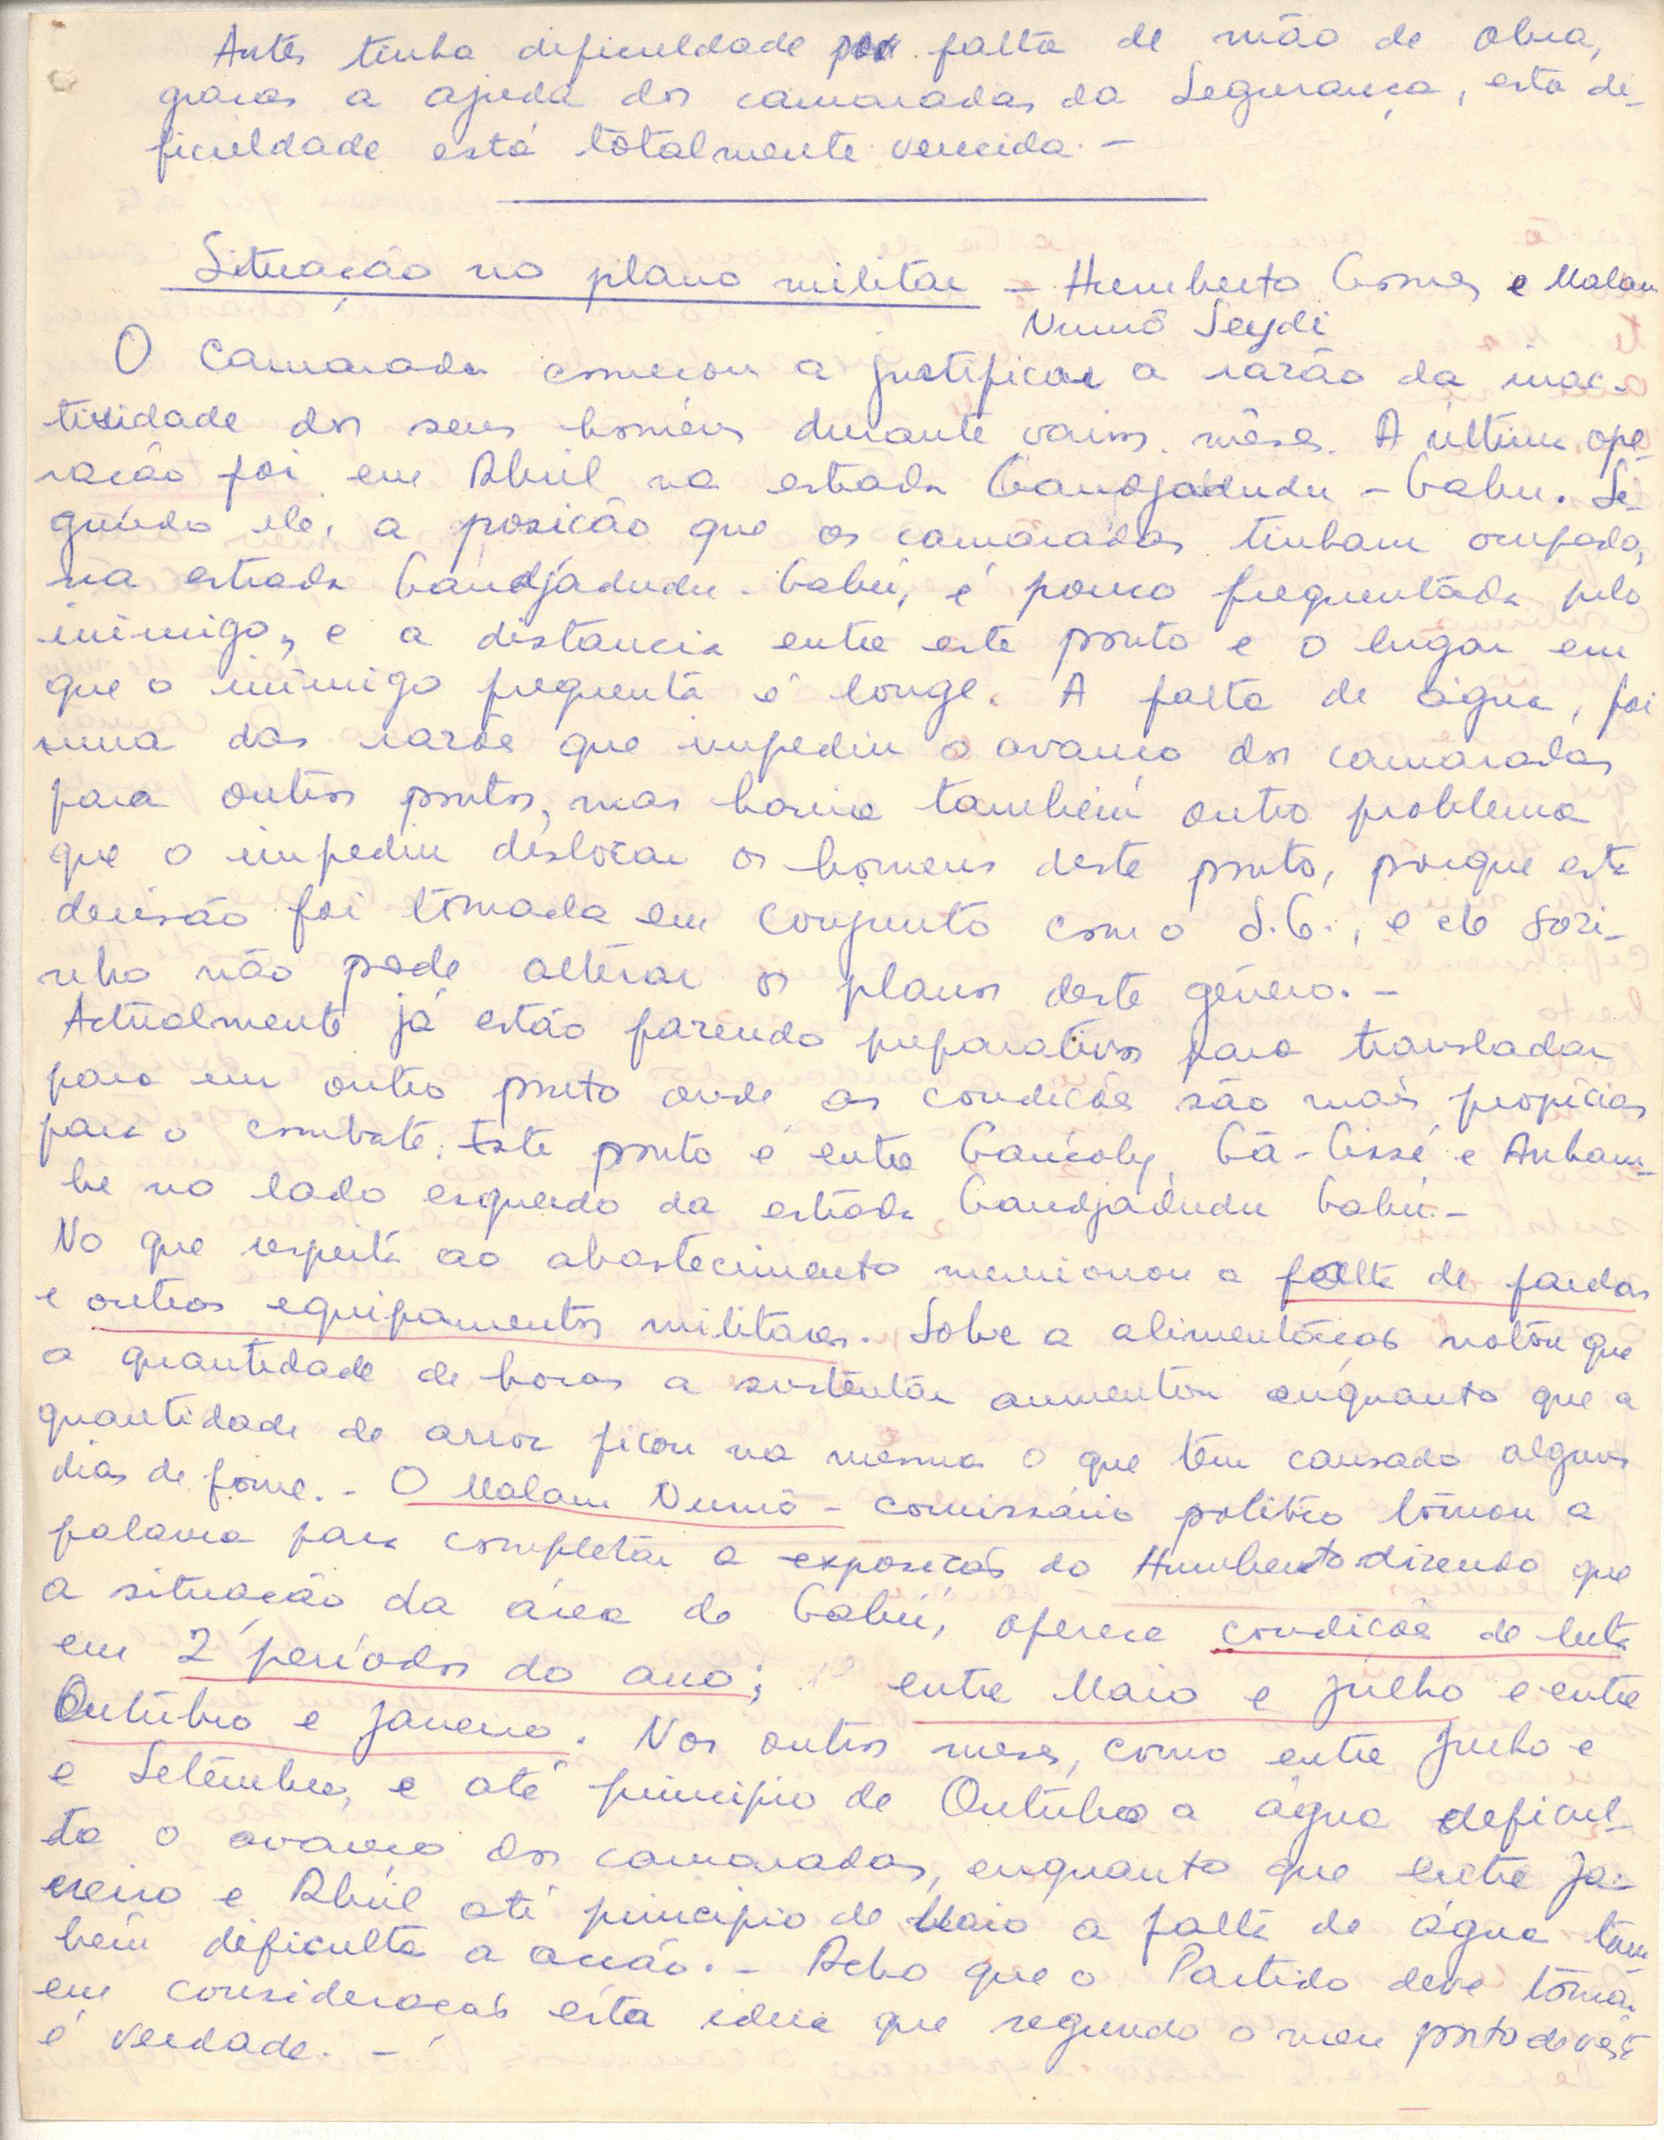 Antes tinha dificuldade por falta de mão de obra,
graças a ajuda dos camaradas da Segurança, esta di-
ficuldade está totalmente vencida. -
Situação no plano militar - Humberto Gomes e Malam
Numô Seydi
O camarada começou a justificar a razão da inac-
tividade dos seus homens durante varios mêses. A última ope-
ração foi em Abril na estrada Candjadudu - Gabu. Se-
gundo ele, a posição que os camaradas tinham ocupado,
na estrada Candjadudu - Gabú, é pouco frequentada pelo
inimigo, e a distancia entre este ponto e o lugar em
que o inimigo frequenta é longe. A falta de água, foi
uma das razõe que impediu o avanço dos camaradas
para outros pontos, mas havia também outro problema
que o impediu deslocar os homens deste ponto, porque esta
decisão foi tomada em conjunto com o S.G., e ele sozi-
nho não pode alterar os planos deste género. -
Actualmente já estão fazendo preparativos para transladar
para um outro ponto onde as condições são mais propícias
para o combate. Este ponto é entre Cancoly, Cã-Cissé e Ankam-
be no lado esquerdo da estrada Candjadudu Gabú. -
No que respeita ao abastecimento mencionou a falta de fardas
e outros equipamentos militares. Sobre a alimentação notou que
a quantidade de bocas a sustentar aumentou enquanto que a
quantidade de arroz ficou na mesma o que têm causado alguns
dias de fome. - O Malam Numô - comissário politico tomou a
palavra para completar a exposição do Humberto dizendo que
a situação da área de Gabú, oferece condições de luta
em 2 períodos do ano; entre Maio e Julho e entre
Outubro e Janeiro. Nos outros meses, como entre Julho e
e Setembro, e até principio de Outubro a água deficul-
ta o avanço dos camaradas, enquanto que entre Ja-
neiro e Abril até principio de Maio a falta de água tam
bém dificulta a acção. - Acho que o Partido deve tomar
em consideração esta ideia que segundo o meu ponto de vista
é verdade. -